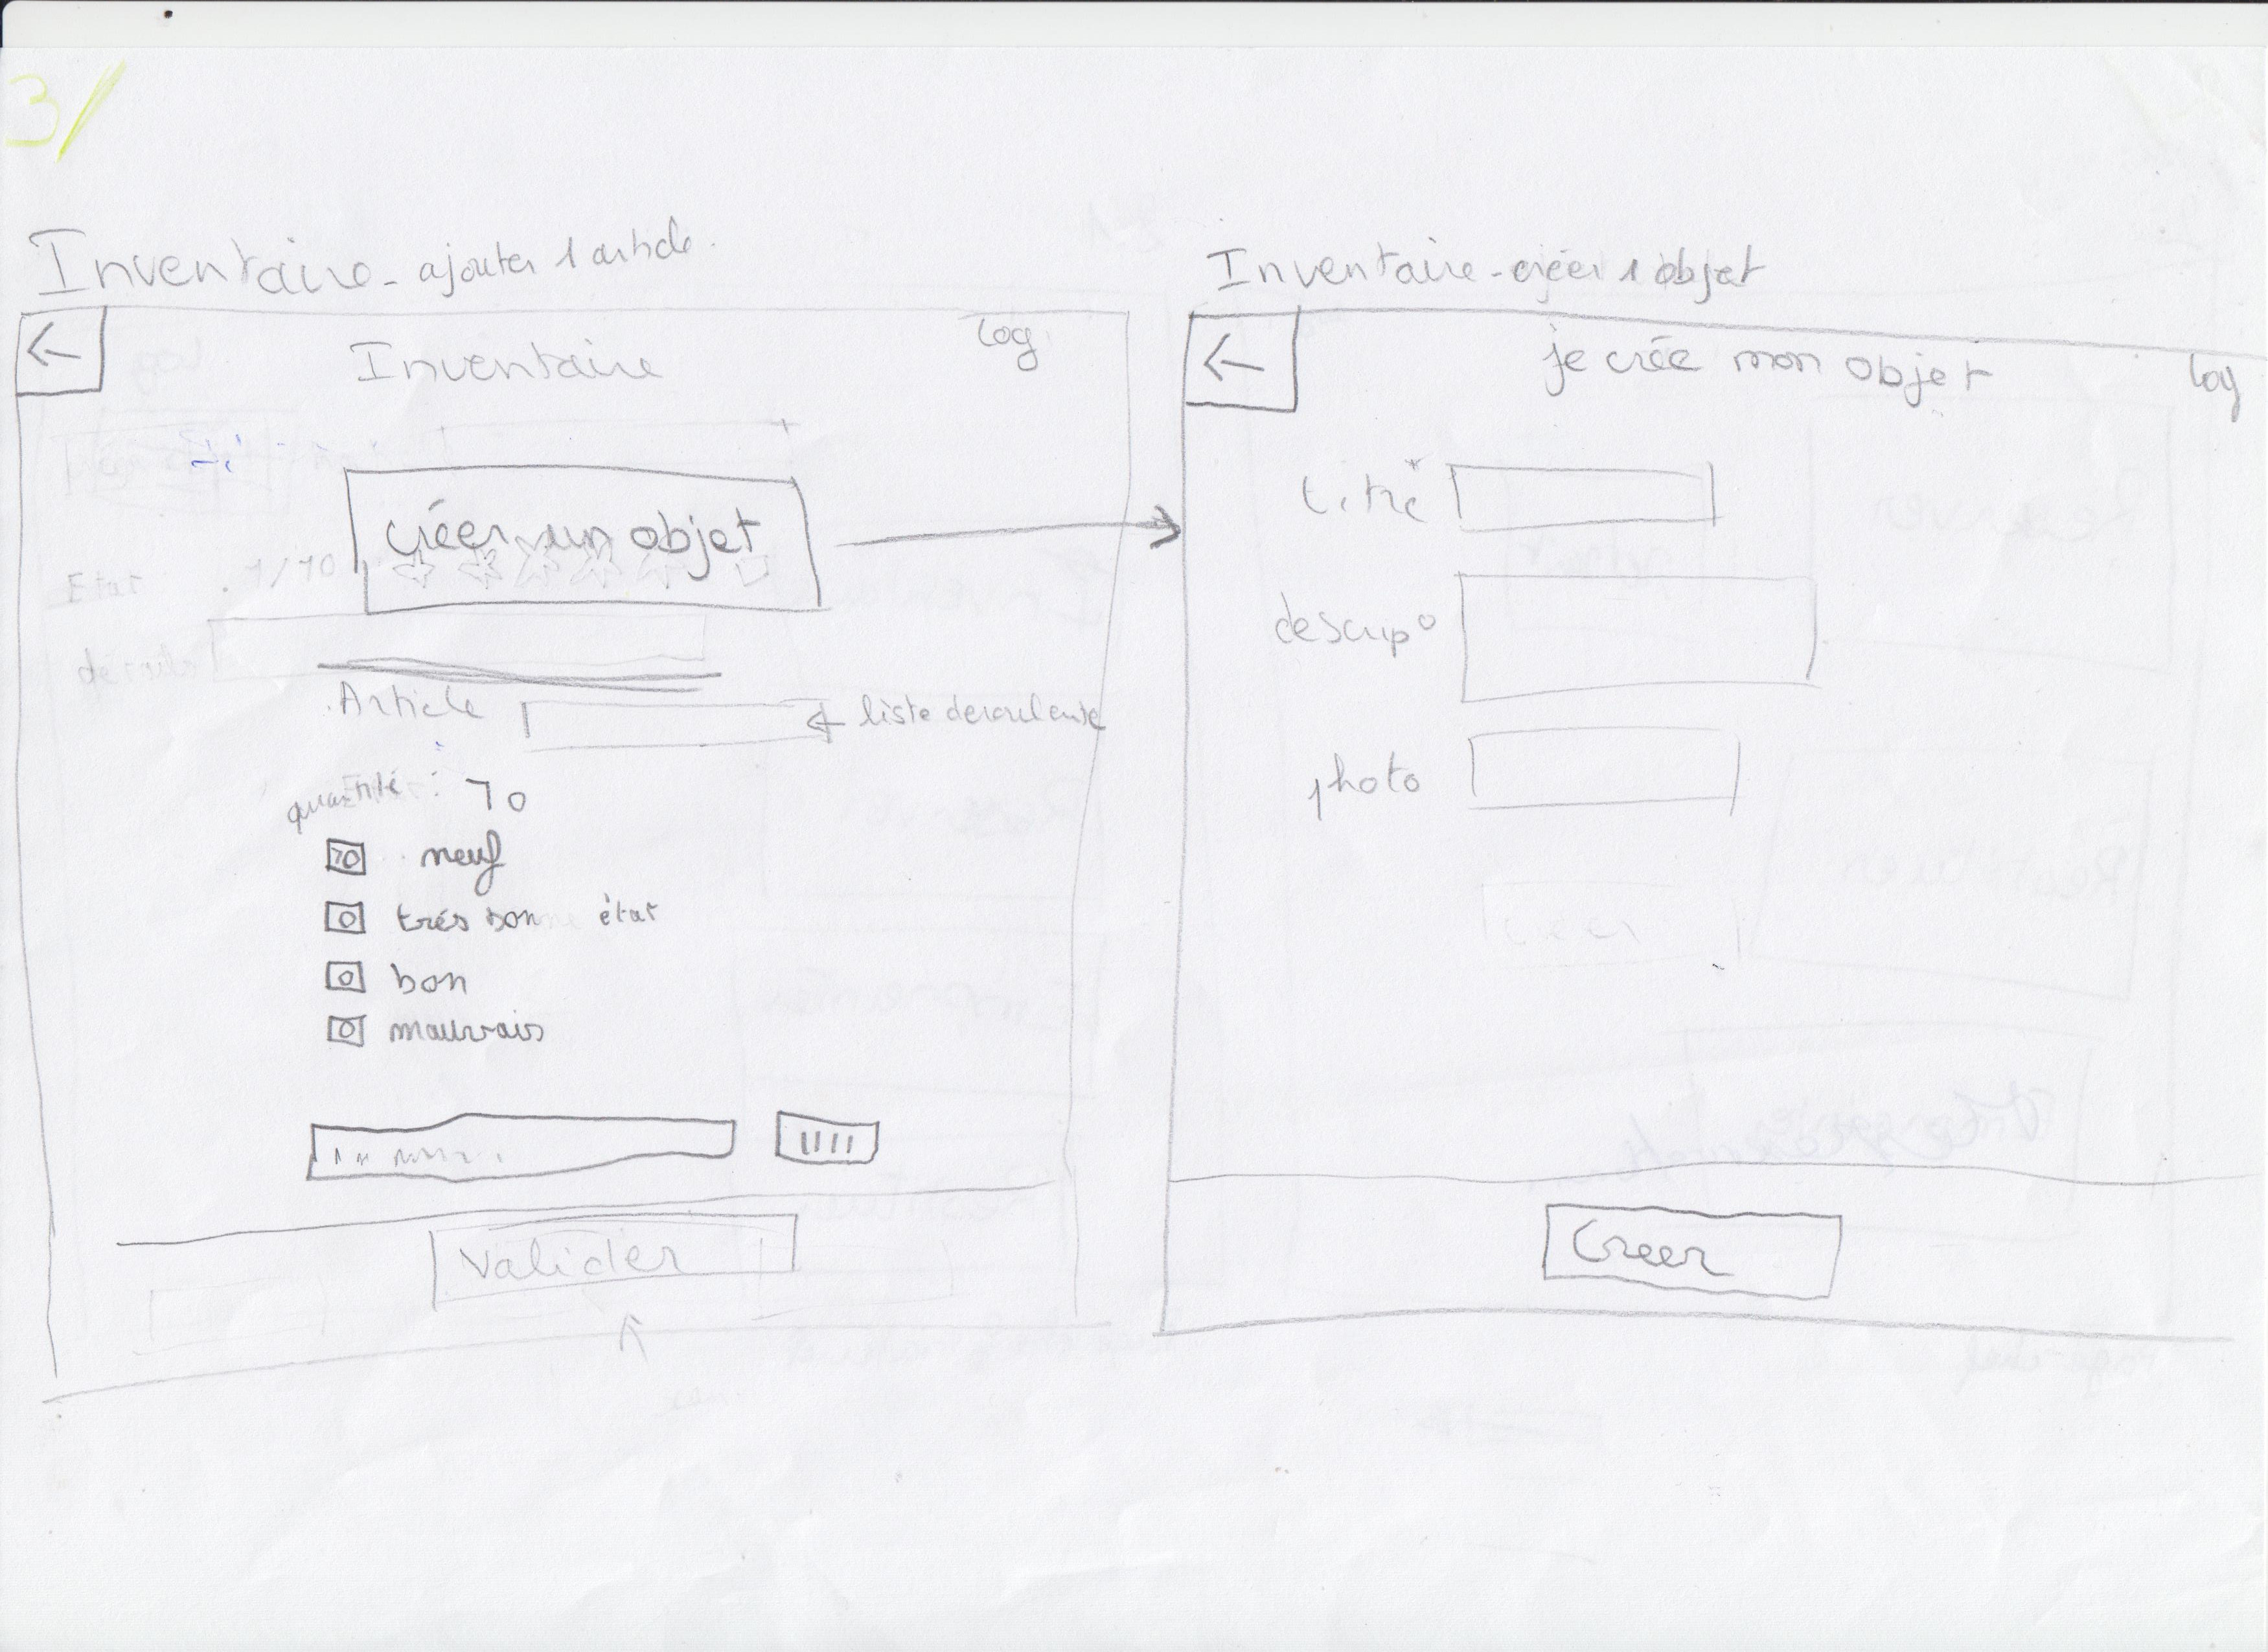 3/
Inventaire - ajouter 1 article.
← Inventaire log
créer un objet
Etat 1/10
Article ← liste deroulante
quantité : 10
10 neuf
0 très bon état
0 bon
0 mauvais
Valider
Inventaire - créer 1 objet
← je crée mon objet log
titre *
descrip°
photo
creer
Creer